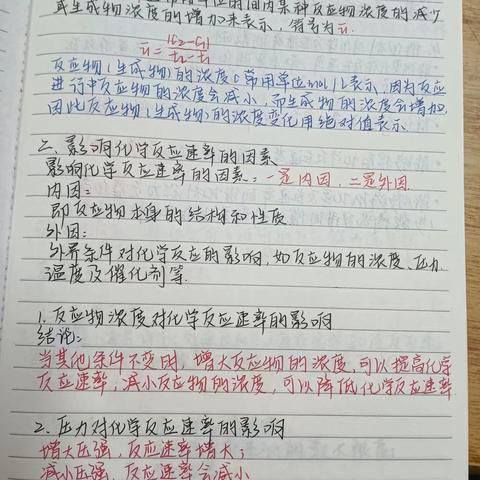 或生成物浓度的增加来表示，符号为ū.
ū=|c₂-c₁|/t₂-t₁
反应物(生成物)的浓度c常用单位mol/L表示,因为反应
进行中反应物的浓度会减小,而生成物的浓度会增加,
因此反应物(生成物)的浓度变化用绝对值表示
二、影响化学反应速率的因素
影响化学反应速率的因素:一是内因,二是外因.
内因:
即反应物本身的结构和性质
外因:
外界条件对化学反应的影响,如反应物的浓度、压力
温度及催化剂等.
1.反应物浓度对化学反应速率的影响
结论:
当其他条件不变时,增大反应物的浓度,可以提高化学
反应速率,减小反应物的浓度,可以降低化学反应速率
2.压力对化学反应速率的影响
增大压强,反应速率增大;
减小压强,反应速率会减小